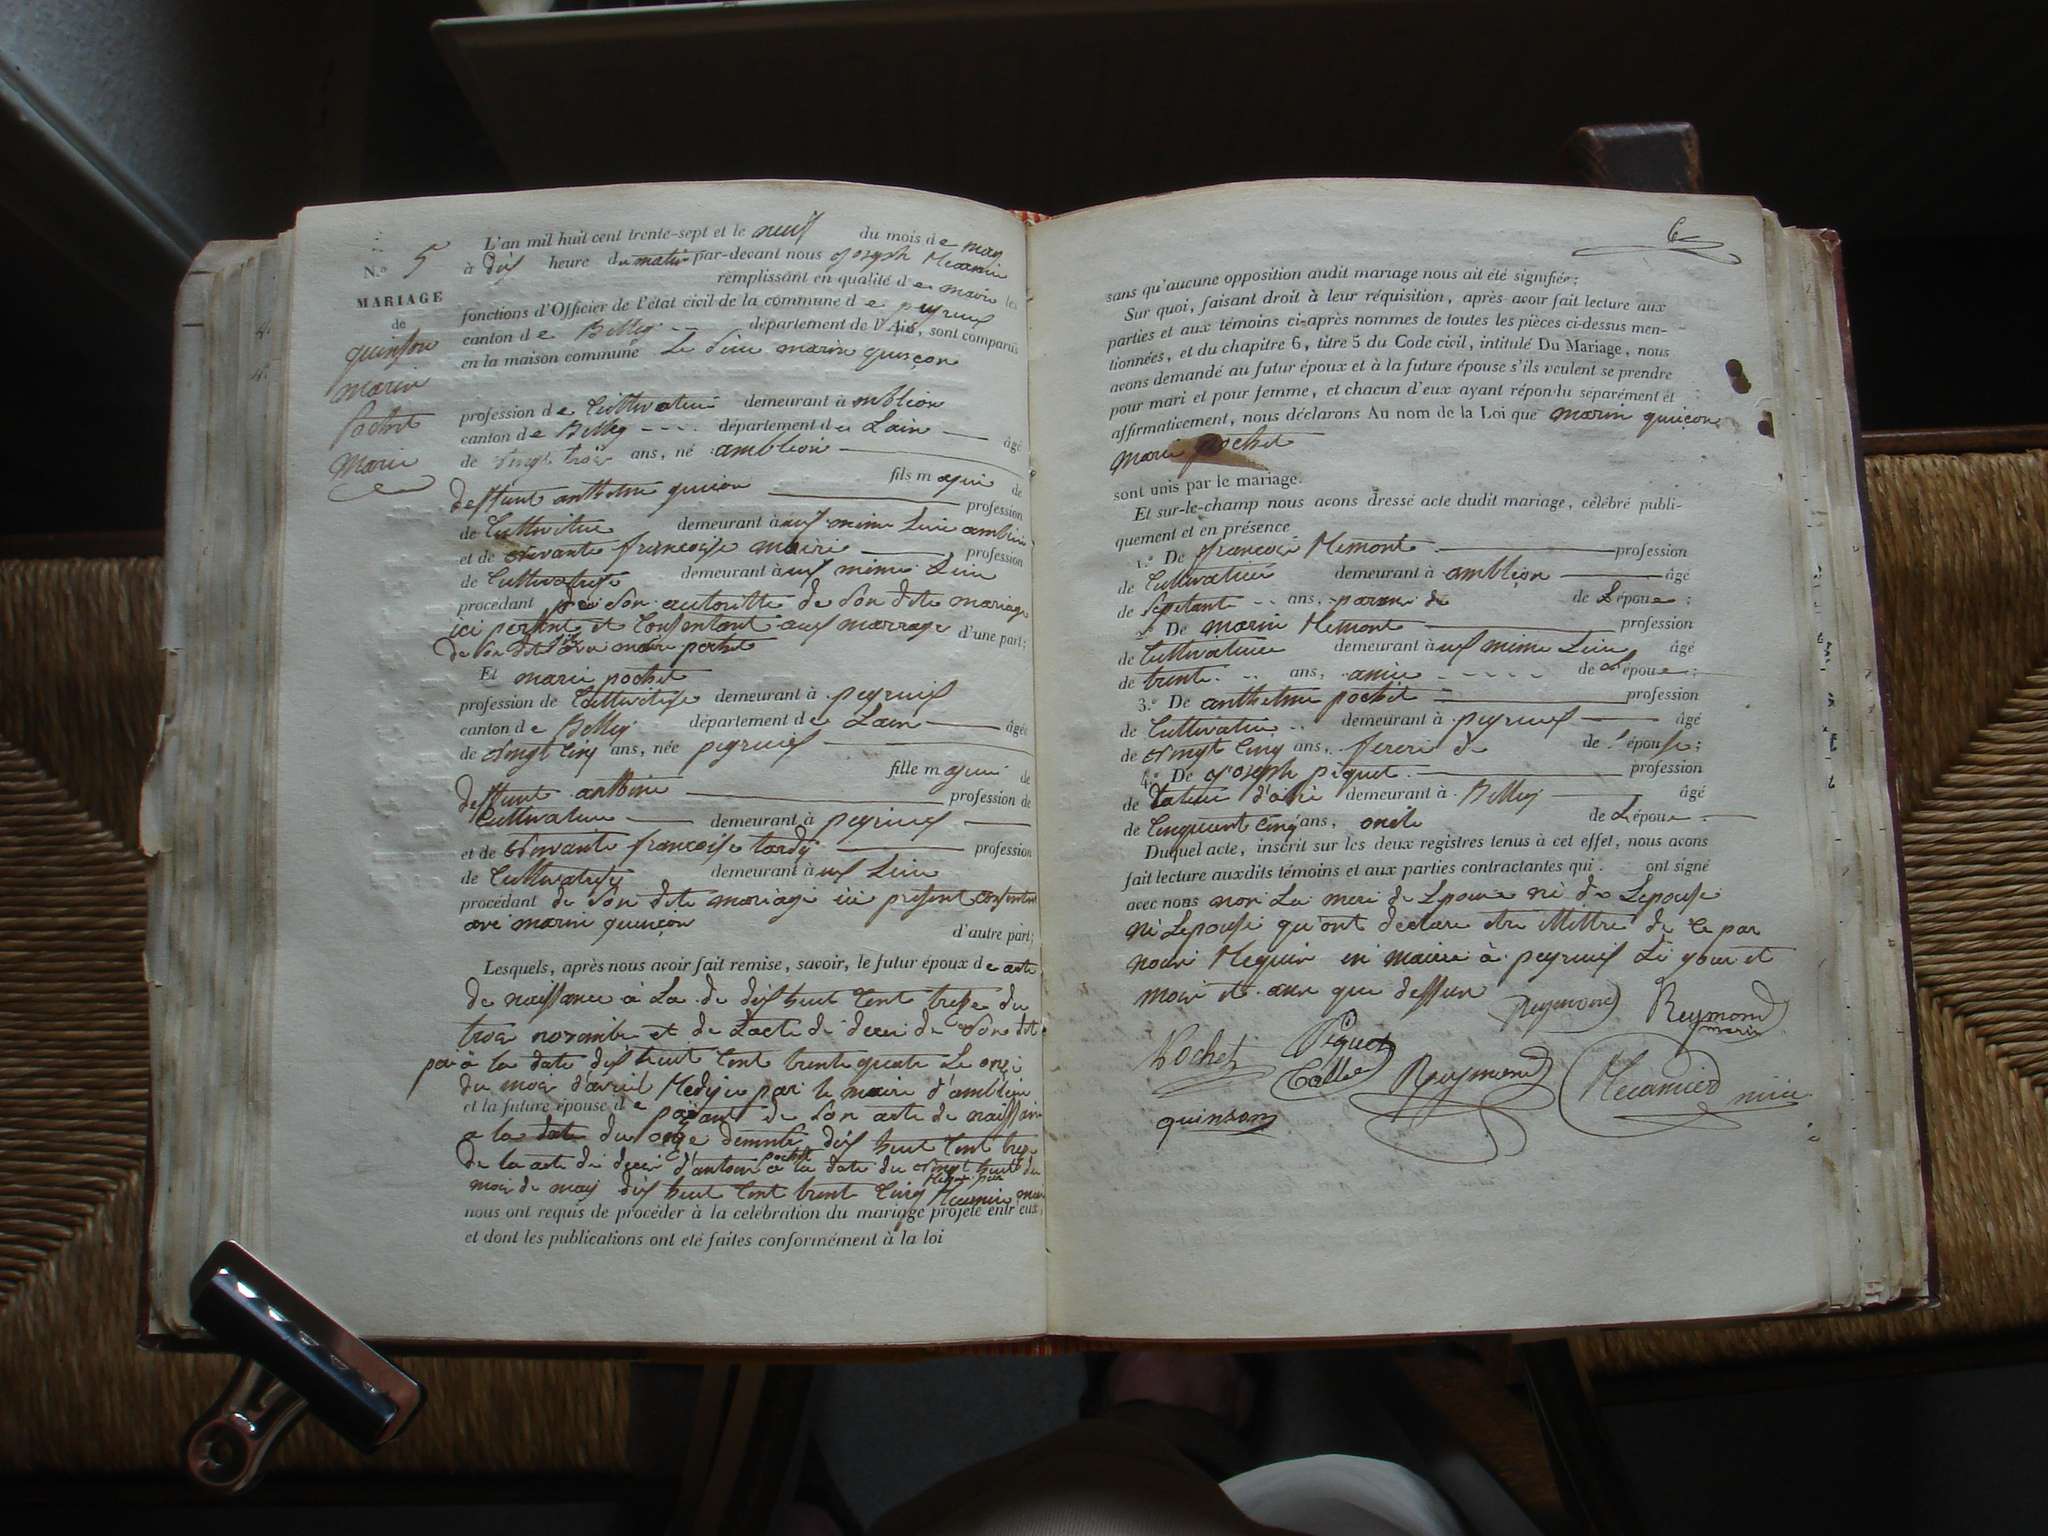 N.o 5
MARIAGE
de
quinson
marin
pochet
marie
L'an mil huit cent trente-sept et le neuf du mois de may
à dix heure du matin par-devant nous joseph
remplissant en qualité de maire les
fonctions d'Officier de l'état civil de la commune de peyrieu
canton de Belley département de l'Ain, sont comparus
en la maison commune Le sieur marin quinçon
profession de Cultivateur demeurant à
canton de Belley département de Lain âgé
de vingt trois ans, né amblion
fils majeur de
deffunt anthelme quinçon profession
de Cultivateur demeurant à aux meme Lieu amblion
et de vivante françoise profession
de Cultivatrise demeurant à aux meme Lieu
procédant de son autoritte de son dite mariage
ici persent et Consentant aux marrage d'une part;
de son dit marie pochet
Et marie pochet
profession de Cultivatrise demeurant à peyrieux
canton de Belley département de Lain âgée
de vingt Cinq ans, née peyrieux
fille majeure de
deffunt antoine profession de
Cultivateur demeurant à peyrieux
et de vivante françoise tardy profession
de Cultivatrise demeurant à aux Lieu
procédant de son dite mariage ici present consentent
ave marin quinçon
d'autre part;
Lesquels, après nous avoir fait remise, savoir, le futur époux de acte
de naissance à La de dix huit Cent tresse du
trois novembre et de Lacte de deces de son dit
per à la date dix huit Cent trente quatre Le onze
du mois d'avril Redige par le maire d'amblion
et la future épouse de son acte de naissance
a la date du onze dix huit Cent
de la acte de deces d'antoine pochet a la date du vingt huit du
mois de may dix huit Cent trent Cinq
nous ont requis de procéder à la célébration du mariage projeté entr'eux,
et dont les publications ont été faites conformément à la loi
6
sans qu'aucune opposition audit mariage nous ait été signifiée;
Sur quoi, faisant droit à leur réquisition, après avoir fait lecture aux
parties et aux témoins ci-après nommés de toutes les pièces ci-dessus men-
tionnées, et du chapitre 6, titre 5 du Code civil, intitulé Du Mariage, nous
avons demandé au futur époux et à la future épouse s'ils veulent se prendre
pour mari et pour femme, et chacun d'eux ayant répondu séparément et
affirmativement, nous déclarons Au nom de la Loi que marin quinçon
marie pochet
sont unis par le mariage.
Et sur-le-champ nous avons dressé acte dudit mariage, célébré publi-
quement et en présence
1.o De françois Remont profession
de Cultivateur demeurant à amblion âgé
de septante ans, paran de de Lépoux;
2.o De marin Remont profession
de Cultivateur demeurant à aux meme Lieu âgé
de trente ans, amie de Lépoux;
3.o De anthelme pochet profession
de Cultivateur demeurant à peyrieux âgé
de vingt Cinq ans, frere de de l'épouse;
4.o De joseph piquet profession
de demeurant à Belley âgé
de Cinquent Cinq ans, oncle de Lépoux
Duquel acte, inscrit sur les deux registres tenus à cet effet, nous avons
fait lecture auxdits témoins et aux parties contractantes qui ont signé
avec nous non La mere de Lpoux ni de Lepouse
ni Lepouse qu'ont declare être illettre de ce par
nous Requis en mairie à peyrieux Li jour et
mois et ans que dessus
Reymond Reymond
marin
Pochet Piquet
Reymond
quinson